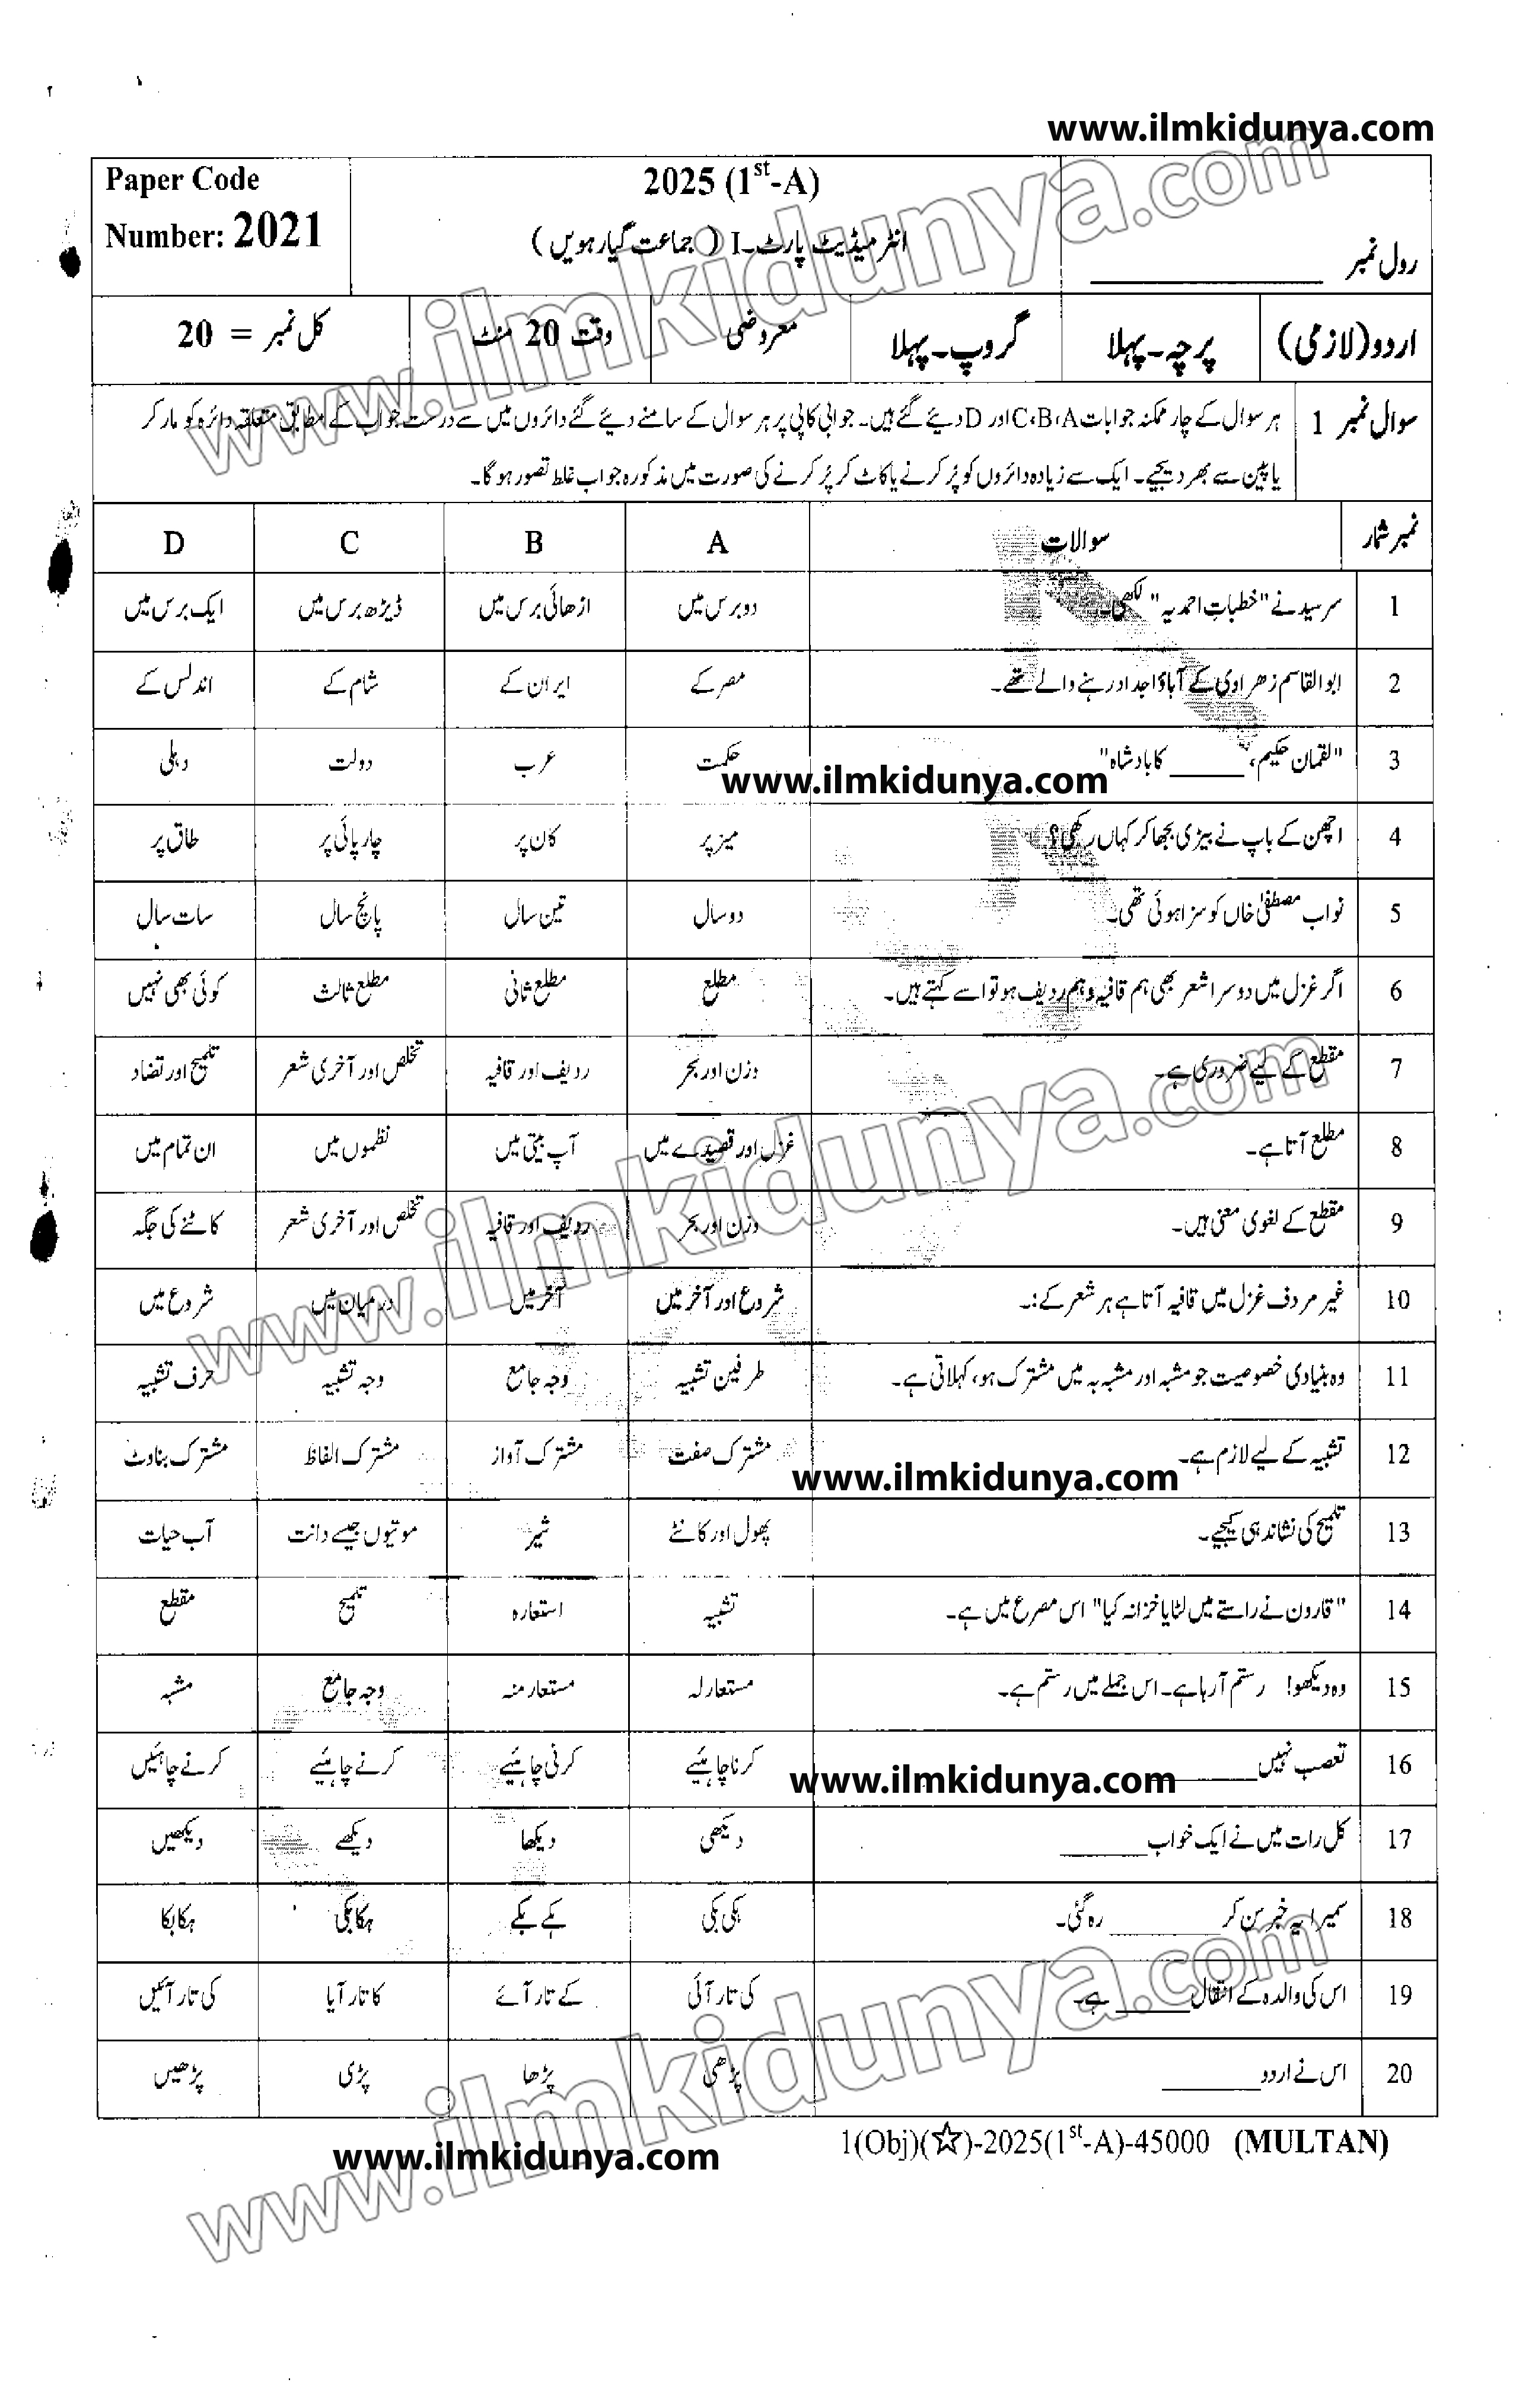 www.ilmkidunya.com
Paper Code
Number: 2021
2025 (1st-A)
انٹرمیڈیٹ پارٹ۔I (جماعت گیارہویں)
رول نمبر ____________
اردو(لازمی) پرچہ۔پہلا گروپ۔پہلا معروضی وقت 20 منٹ کل نمبر = 20
سوال نمبر 1 ہر سوال کے چار ممکنہ جوابات C،B،A اور D دیئے گئے ہیں۔ جوابی کاپی پر ہر سوال کے سامنے دیئے گئے دائروں میں سے درست جواب کے مطابق متعلقہ دائرہ کو مارکر
یا پین سے بھر دیجیے۔ ایک سے زیادہ دائروں کو پُر کرنے یا کاٹ کر پُر کرنے کی صورت میں مذکورہ جواب غلط تصور ہوگا۔
نمبر شمار سوالات A B C D
1 سرسید نے "خطباتِ احمدیہ" لکھی۔ دو برس میں اڑھائی برس میں ڈیڑھ برس میں ایک برس میں
2 ابوالقاسم زہراوی کے آباؤاجداد رہنے والے تھے۔ مصر کے ایران کے شام کے اندلس کے
3 "لقمان حکیم، ______ کا بادشاہ" حکمت عرب دولت دہلی
www.ilmkidunya.com
4 اچھن کے باپ نے بیڑی بجھا کر کہاں رکھی؟ میز پر کان پر چارپائی پر طاق پر
5 نواب مصطفٰی خاں کو سزا ہوئی تھی۔ دو سال تین سال پانچ سال سات سال
6 اگر غزل میں دوسرا شعر بھی ہم قافیہ وہم ردیف ہو تو اسے کہتے ہیں۔ مطلع مطلع ثانی مطلع ثالث کوئی بھی نہیں
7 مقطع کے لیے ضروری ہے۔ وزن اور بحر ردیف اور قافیہ تخلص اور آخری شعر تلمیح اور تضاد
8 مطلع آتا ہے۔ غزل اور قصیدے میں آپ بیتی میں نظموں میں ان تمام میں
9 مقطع کے لغوی معنی ہیں۔ وزن اور بحر ردیف اور قافیہ تخلص اور آخری شعر کاٹنے کی جگہ
10 غیر مردف غزل میں قافیہ آتا ہے ہر شعر کے:۔ شروع اور آخر میں آخر میں درمیان میں شروع میں
11 وہ بنیادی خصوصیت جو مشبہ اور مشبہ بہ میں مشترک ہو، کہلاتی ہے۔ طرفین تشبیہ وجہ جامع وجہ تشبیہ حرف تشبیہ
12 تشبیہ کے لیے لازم ہے۔ مشترک صفت مشترک آواز مشترک الفاظ مشترک بناوٹ
www.ilmkidunya.com
13 تلمیح کی نشاندہی کیجیے۔ پھول اور کانٹے شیر موتیوں جیسے دانت آب حیات
14 "قارون نے راستے میں لٹایا خزانہ کیا" اس مصرع میں ہے۔ تشبیہ استعارہ تلمیح مقطع
15 وہ دیکھو! رستم آرہا ہے۔ اس جملے میں رستم ہے۔ مستعارلہ مستعارمنہ وجہ جامع مشبہ
16 تعصب نہیں ______ کرنا چاہئیے کرنی چاہئیے کرنے چاہئیے کرنے چاہئیں
www.ilmkidunya.com
17 کل رات میں نے ایک خواب ______ دیکھی دیکھا دیکھے دیکھیں
18 سمیرا یہ خبر سن کر ______ رہ گئی۔ ہکی بکی ہکے بکے ہکا بکی ہکا بکا
19 اس کی والدہ کے انتقال ______ ہے۔ کی تار آئی کے تار آئے کا تار آیا کی تار آئیں
20 اس نے اردو ______ پڑھی پڑھا پڑی پڑھیں
1(Obj)(☆)-2025(1st-A)-45000 (MULTAN)
www.ilmkidunya.com
www.ilmkidunya.com
www.ilmkidunya.com
www.ilmkidunya.com